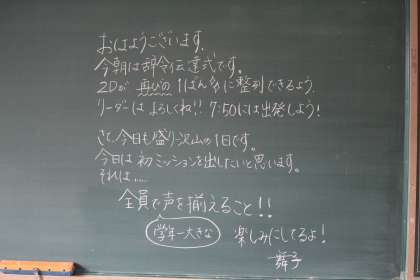 おはようございます。
今朝は辞令伝達式です。
2Dが再びの1ばん多に整列できるよう、
リーダーはよろしくね!! 7:50には出発しよう!
さて、今日も盛り沢山の1日です。
今日は初ミッションを出したいと思います。
それは.....
全員で声を揃えること!!
学年一大きな 楽しみにしてるよ!
舞子